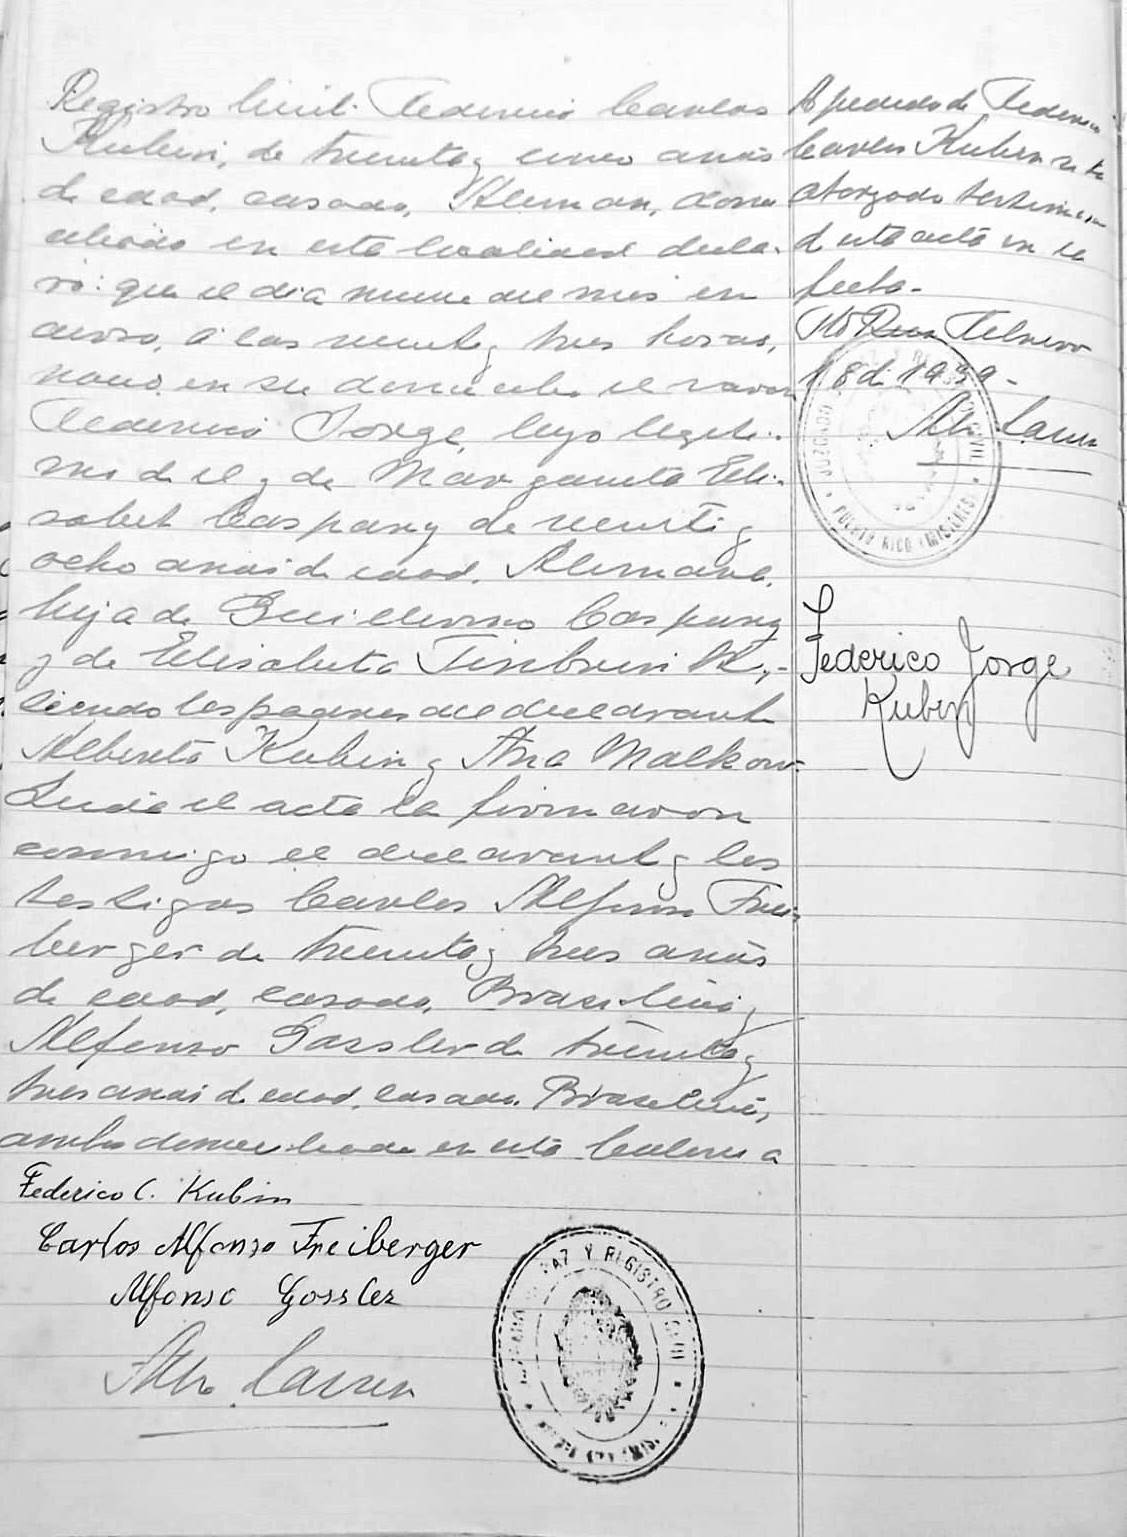 Registro Civil. Federico Carlos
Kubin, de treinta y cinco años
de edad, casado, Aleman, domi
ciliado en esta localidad decla-
ró: que el dia nueve del mes en
curso, a las veinte y tres horas,
nació en su domicilio el varon
Federico Jorge, hijo legiti-
mo de el y de Margarita Eli-
sabet Caspary de veinte y
ocho años de edad, Alemana,
hija de Guillermo Caspary
y de Elisabeta
siendo los padres del declarante
Alberto Kubin y Ana Malkow.
Leida el acta la firmaron
conmigo el declarante y los
testigos Carlos Alfonso Frei
berger de treinta y tres años
de edad, casado, Brasilero y
Alfonso Gossler de treinta y
tres años de edad, casado, Brasilero,
ambos domiciliados en esta Colonia
Federico C. Kubin
Carlos Alfonso Freiberger
Alfonso Gossler
JUZGADO DE PAZ Y REGISTRO CIVIL
A pedido de Federico
Carlos Kubin se ha
otorgado testimonio
de esta acta en la
fecha.
Pto Rico Febrero
18 de 1939-
JUZGADO DE PAZ Y REGISTRO CIVIL
PUERTO RICO (MISIONES)
Federico Jorge
Kubin